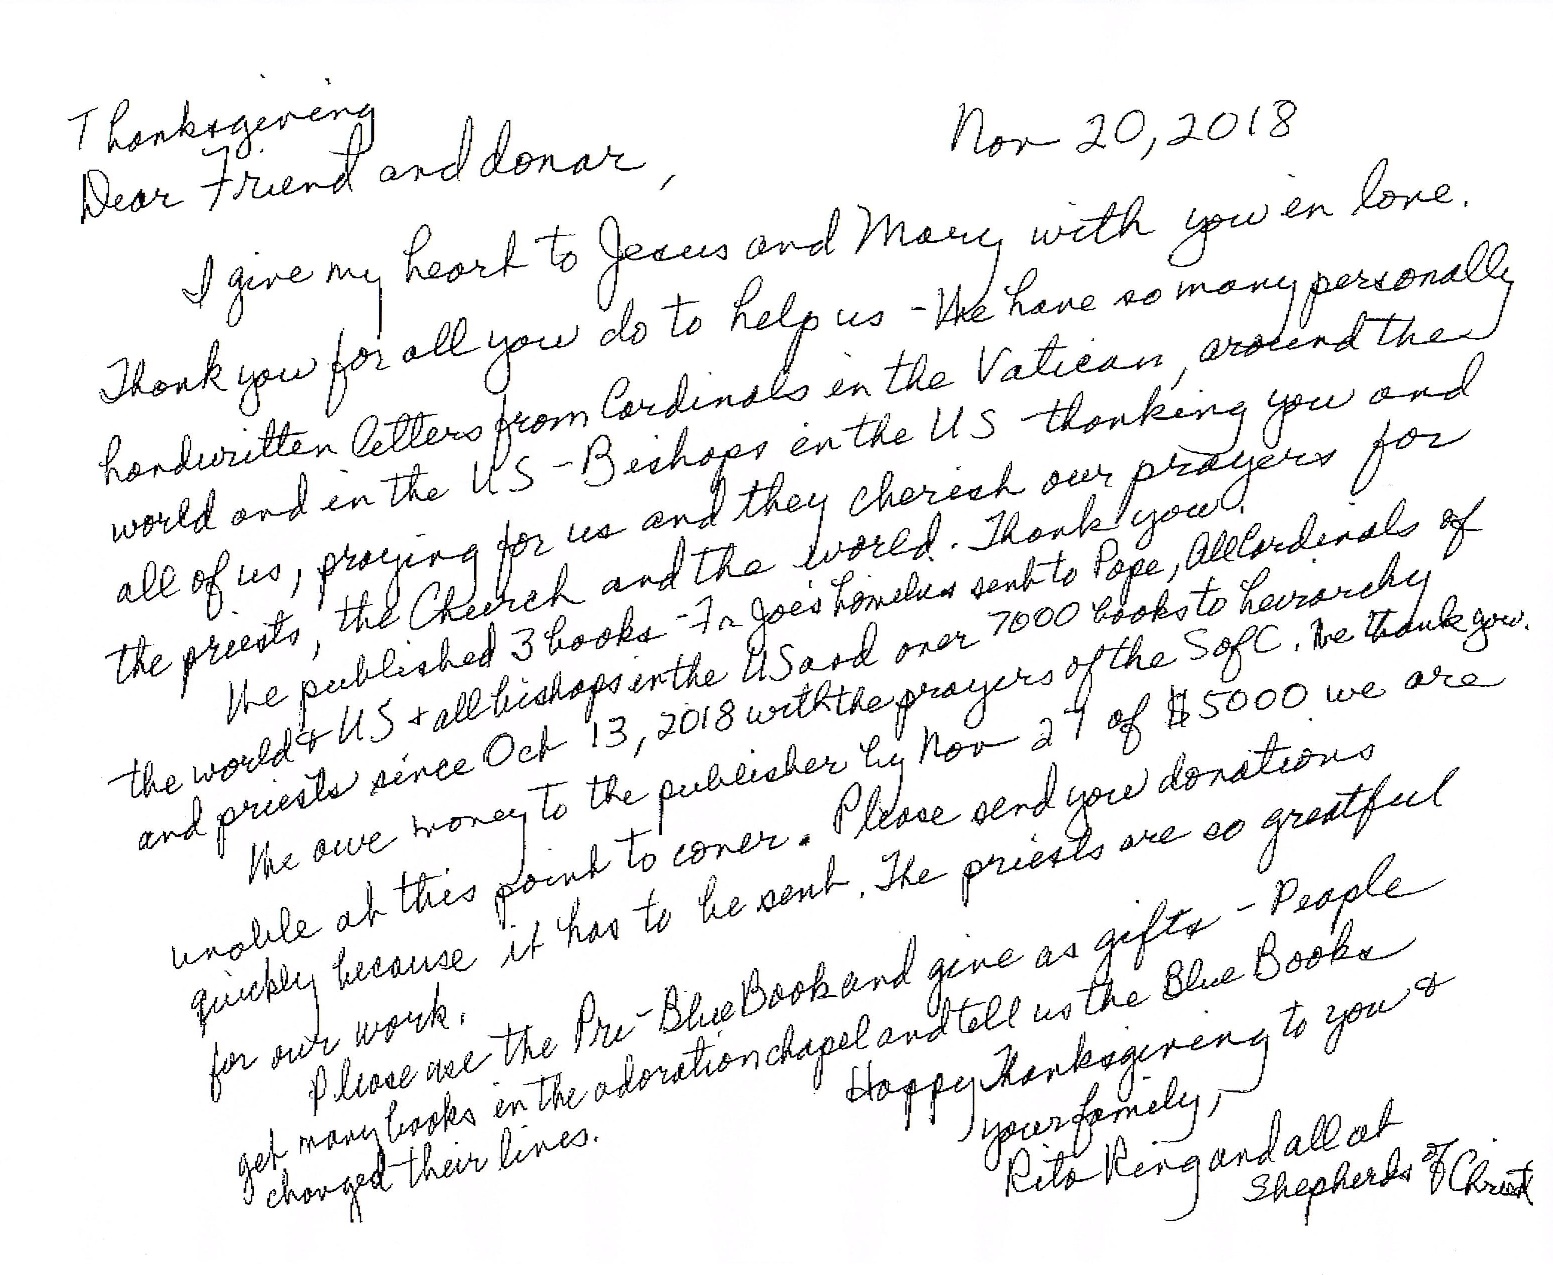 Thanksgiving
Nov 20, 2018
Dear Friend and donar,
I give my heart to Jesus and Mary with you in love.
Thank you for all you do to help us - We have so many personally
handwritten letters from Cardinals in the Vatican, around the
world and in the US - Bishops in the US thanking you and
all of us, praying for us and they cherish our prayers for
the priests, the Church and the world. Thank you.
We published 3 books - Fr Joe's homilies sent to Pope, All Cardinals of
the world + US + all bishops in the US and over 7000 books to heirarchy
and priests since Oct 13, 2018 with the prayers of the S of C. We thank you.
We owe money to the publisher by Nov 27 of $5000 we are
unable at this point to cover. Please send you donations
quickly because it has to be sent. The priests are so greatful
for our work.
Please use the Pri-Blue Book and give as gifts - People
get many books in the adoration chapel and tell us the Blue Books
changed their lives.
Happy Thanksgiving to you &
your family,
Rita Ring and all at
Shepherds of Christ